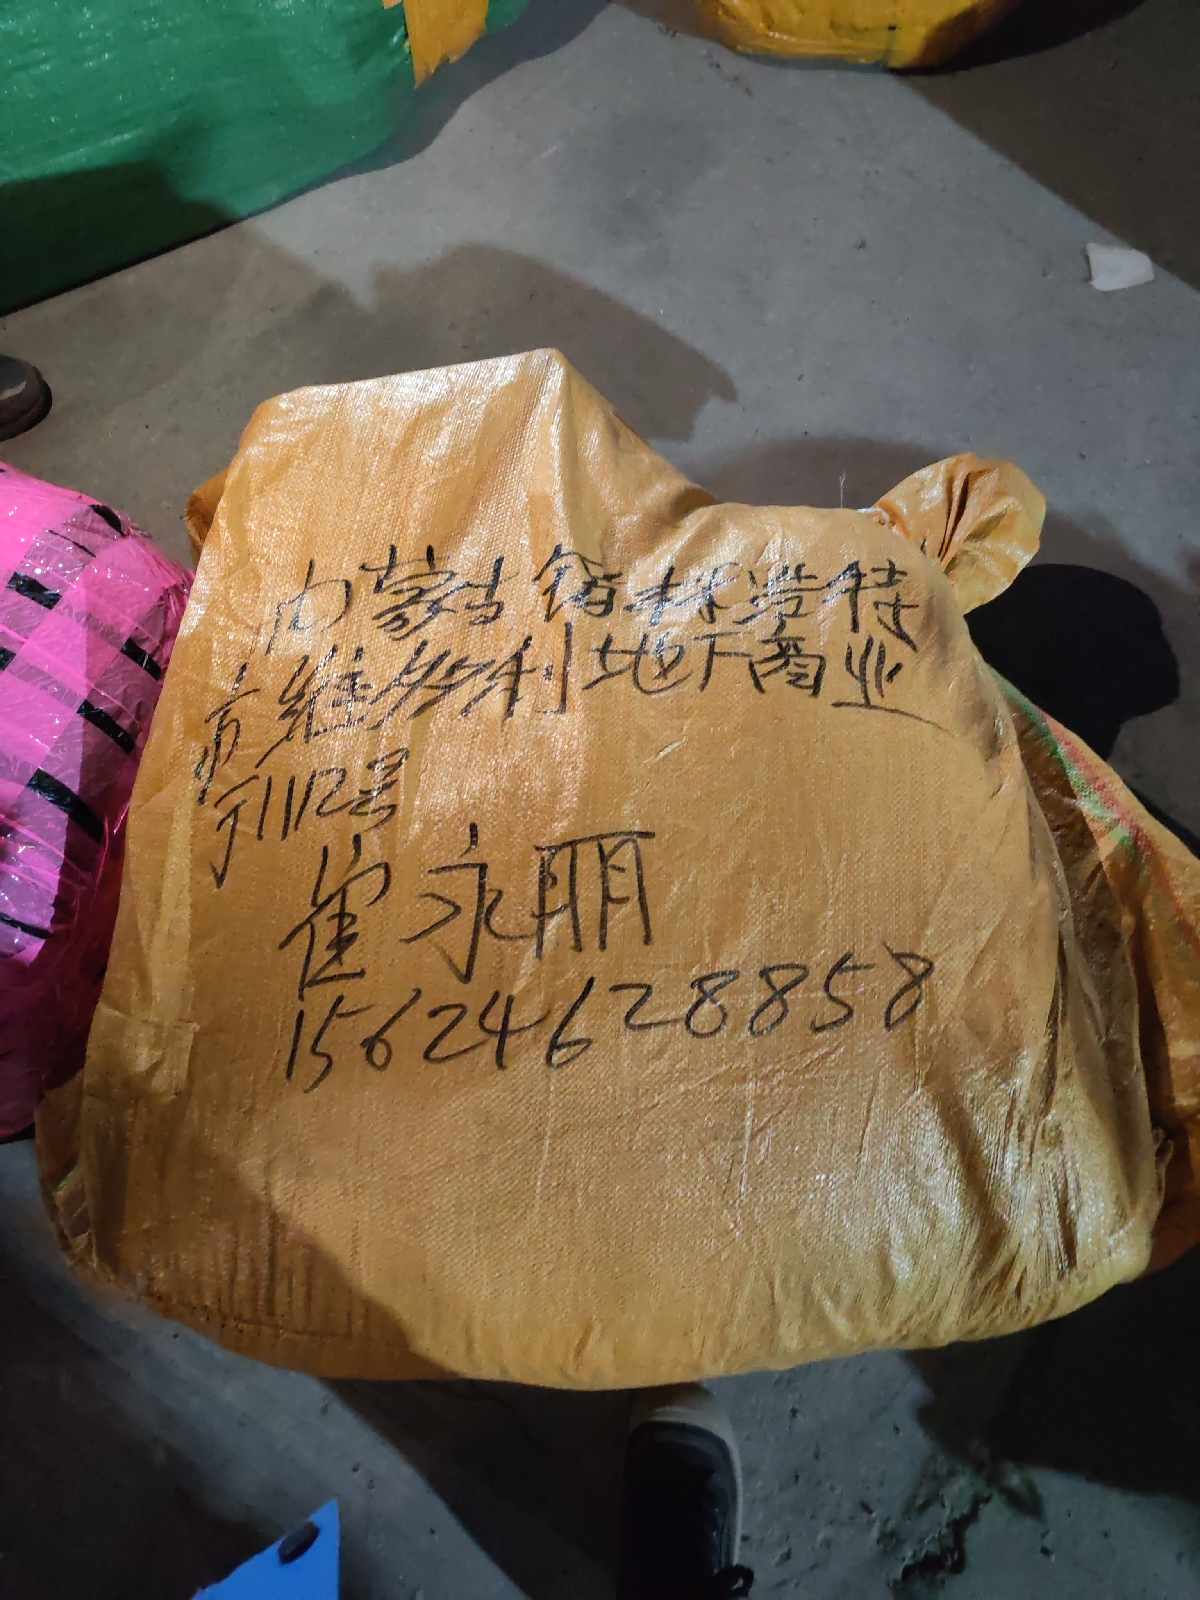 内蒙古锡林浩特
市维多利地下商业
街1112号
崔永丽
15624628858